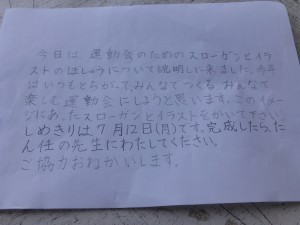 今日は運動会のためのスローガンとイラ
ストのぼしゅうについて説明しに来ました。今年
はいつもとちがって、みんなでつくる、みんなで
楽しむ運動会にしようと思います。このイメー
ジにあったスローガンとイラストをかいて下さい。
しめきりは7月12日(月)です。完成したら、た
ん任の先生にわたしてください。
ご協力おねがいします。